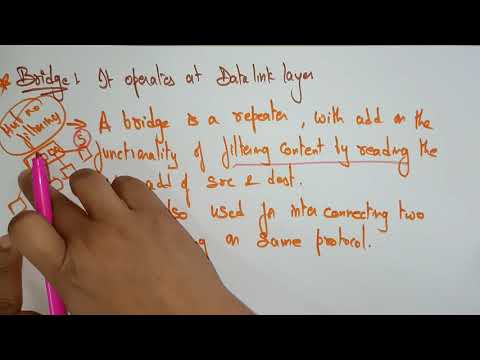 * Bridge: It operates at Data link layer
Hub no filtering
A bridge is a repeater, with add on the
functionality of filtering content by reading the
add of src & dest.
also used for inter connecting two
on same protocol.